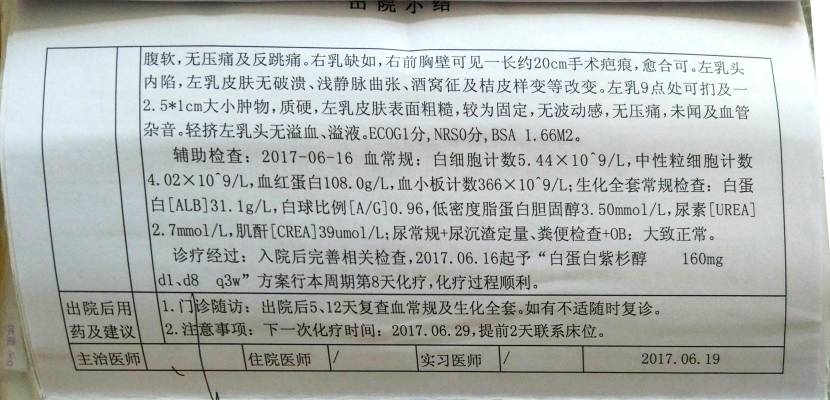 出院小结
腹软,无压痛及反跳痛。右乳缺如,右前胸壁可见一长约20cm手术疤痕,愈合可。左乳头
内陷,左乳皮肤无破溃、浅静脉曲张、酒窝征及桔皮样变等改变。左乳9点处可扪及一
2.5*1cm大小肿物,质硬,左乳皮肤表面粗糙,较为固定,无波动感,无压痛,未闻及血管
杂音。轻挤左乳头无溢血、溢液。ECOG1分,NRS0分,BSA 1.66M2。
辅助检查: 2017-06-16 血常规: 白细胞计数5.44×10^9/L,中性粒细胞计数
4.02×10^9/L,血红蛋白108.0g/L,血小板计数366×10^9/L;生化全套常规检查: 白蛋
白[ALB]31.1g/L,白球比例[A/G]0.96,低密度脂蛋白胆固醇3.50mmol/L,尿素[UREA]
2.7mmol/L,肌酐[CREA]39umol/L;尿常规+尿沉渣定量、粪便检查+OB: 大致正常。
诊疗经过: 入院后完善相关检查,2017.06.16起予“白蛋白紫杉醇 160mg
d1、d8 q3w”方案行本周期第8天化疗,化疗过程顺利。
出院后用药及建议
1. 门诊随访: 出院后5、12天复查血常规及生化全套。如有不适随时复诊。
2. 注意事项: 下一次化疗时间: 2017.06.29,提前2天联系床位。
主治医师 住院医师 / 实习医师 / 2017.06.19